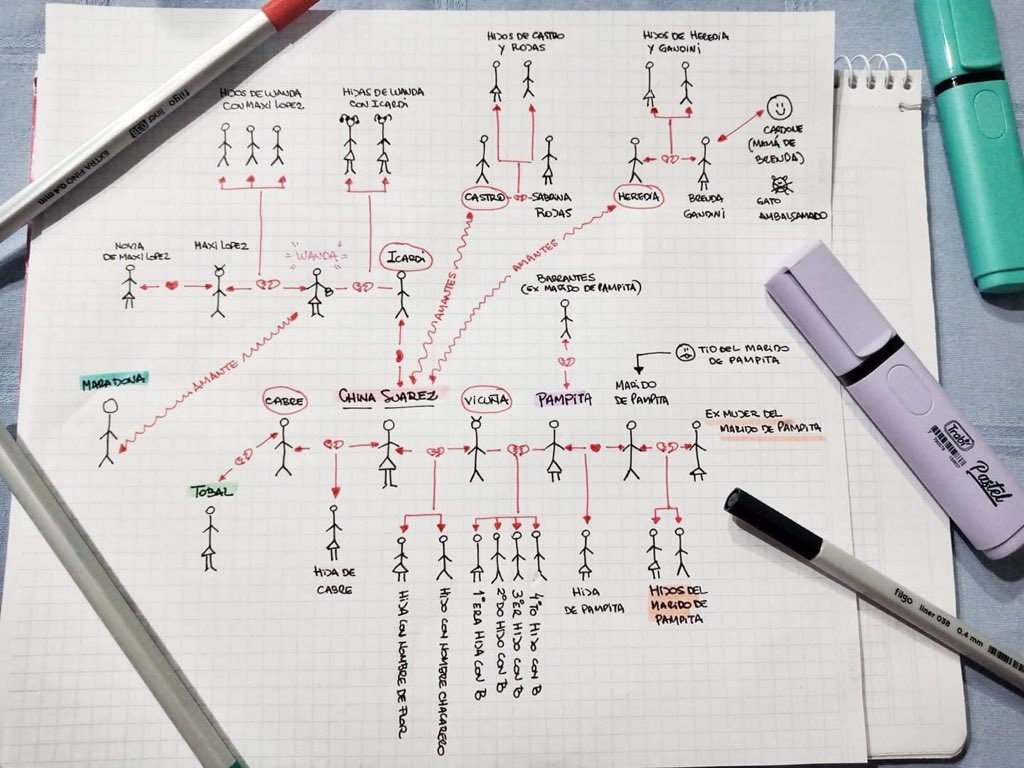 HIJOS DE CASTRO
Y ROJAS
HIJOS DE HEREDIA
Y GANDINI
HIJOS DE WANDA
CON MAXI LOPEZ
HIJAS DE WANDA
CON ICARDI
CARDONE
(MAMÁ DE
BRENDA)
GATO
EMBALSAMADO
CASTRO
SABRINA
ROJAS
HEREDIA
BRENDA
GANDINI
NOVIA
DE MAXI LOPEZ
MAXI LOPEZ
"WANDA"
ICARDI
AMANTES
AMANTES
BARRANTES
(EX MARIDO DE PAMPITA)
AMANTE
MARADONA
CABRE
CHINA SUAREZ
VICUÑA
PAMPITA
MARIDO
DE PAMPITA
TIO DEL MARIDO
DE PAMPITA
EX MUJER DEL
MARIDO DE PAMPITA
TOBAL
HIJA DE
CABRE
HIJA CON NOMBRE DE FLOR
HIJO CON NOMBRE CHACARERO
1ºERA HIJA CON B
2ºDO HIJO CON B
3ºER HIJO CON B
4ºTO HIJO CON B
HIJA
DE PAMPITA
HIJOS DEL
MARIDO DE
PAMPITA
filgo liner
EXTRA FINO 0.4 mm
Trabi
Pastel
filgo liner 038 0.4 mm